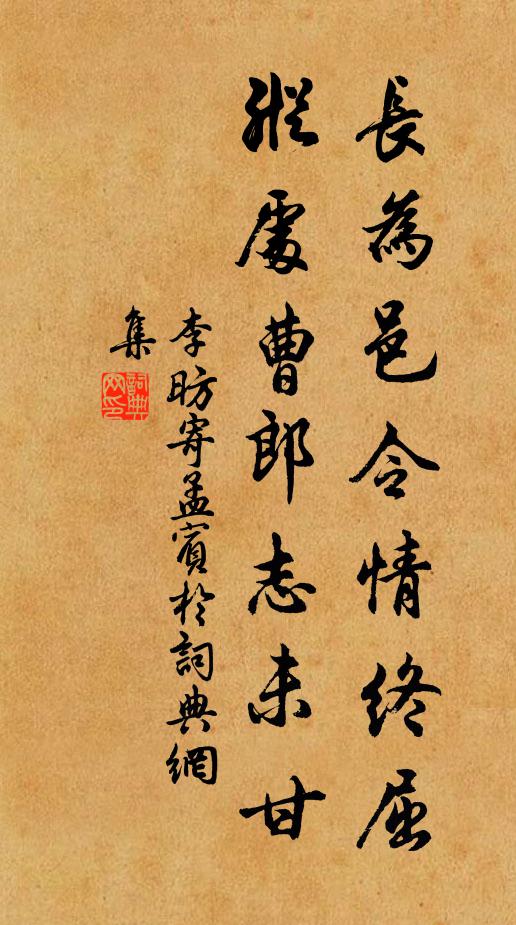 長為邑令情終屈
縱處曹郎志未甘
李昉寄孟賓於詞典網
集
詞典
网印